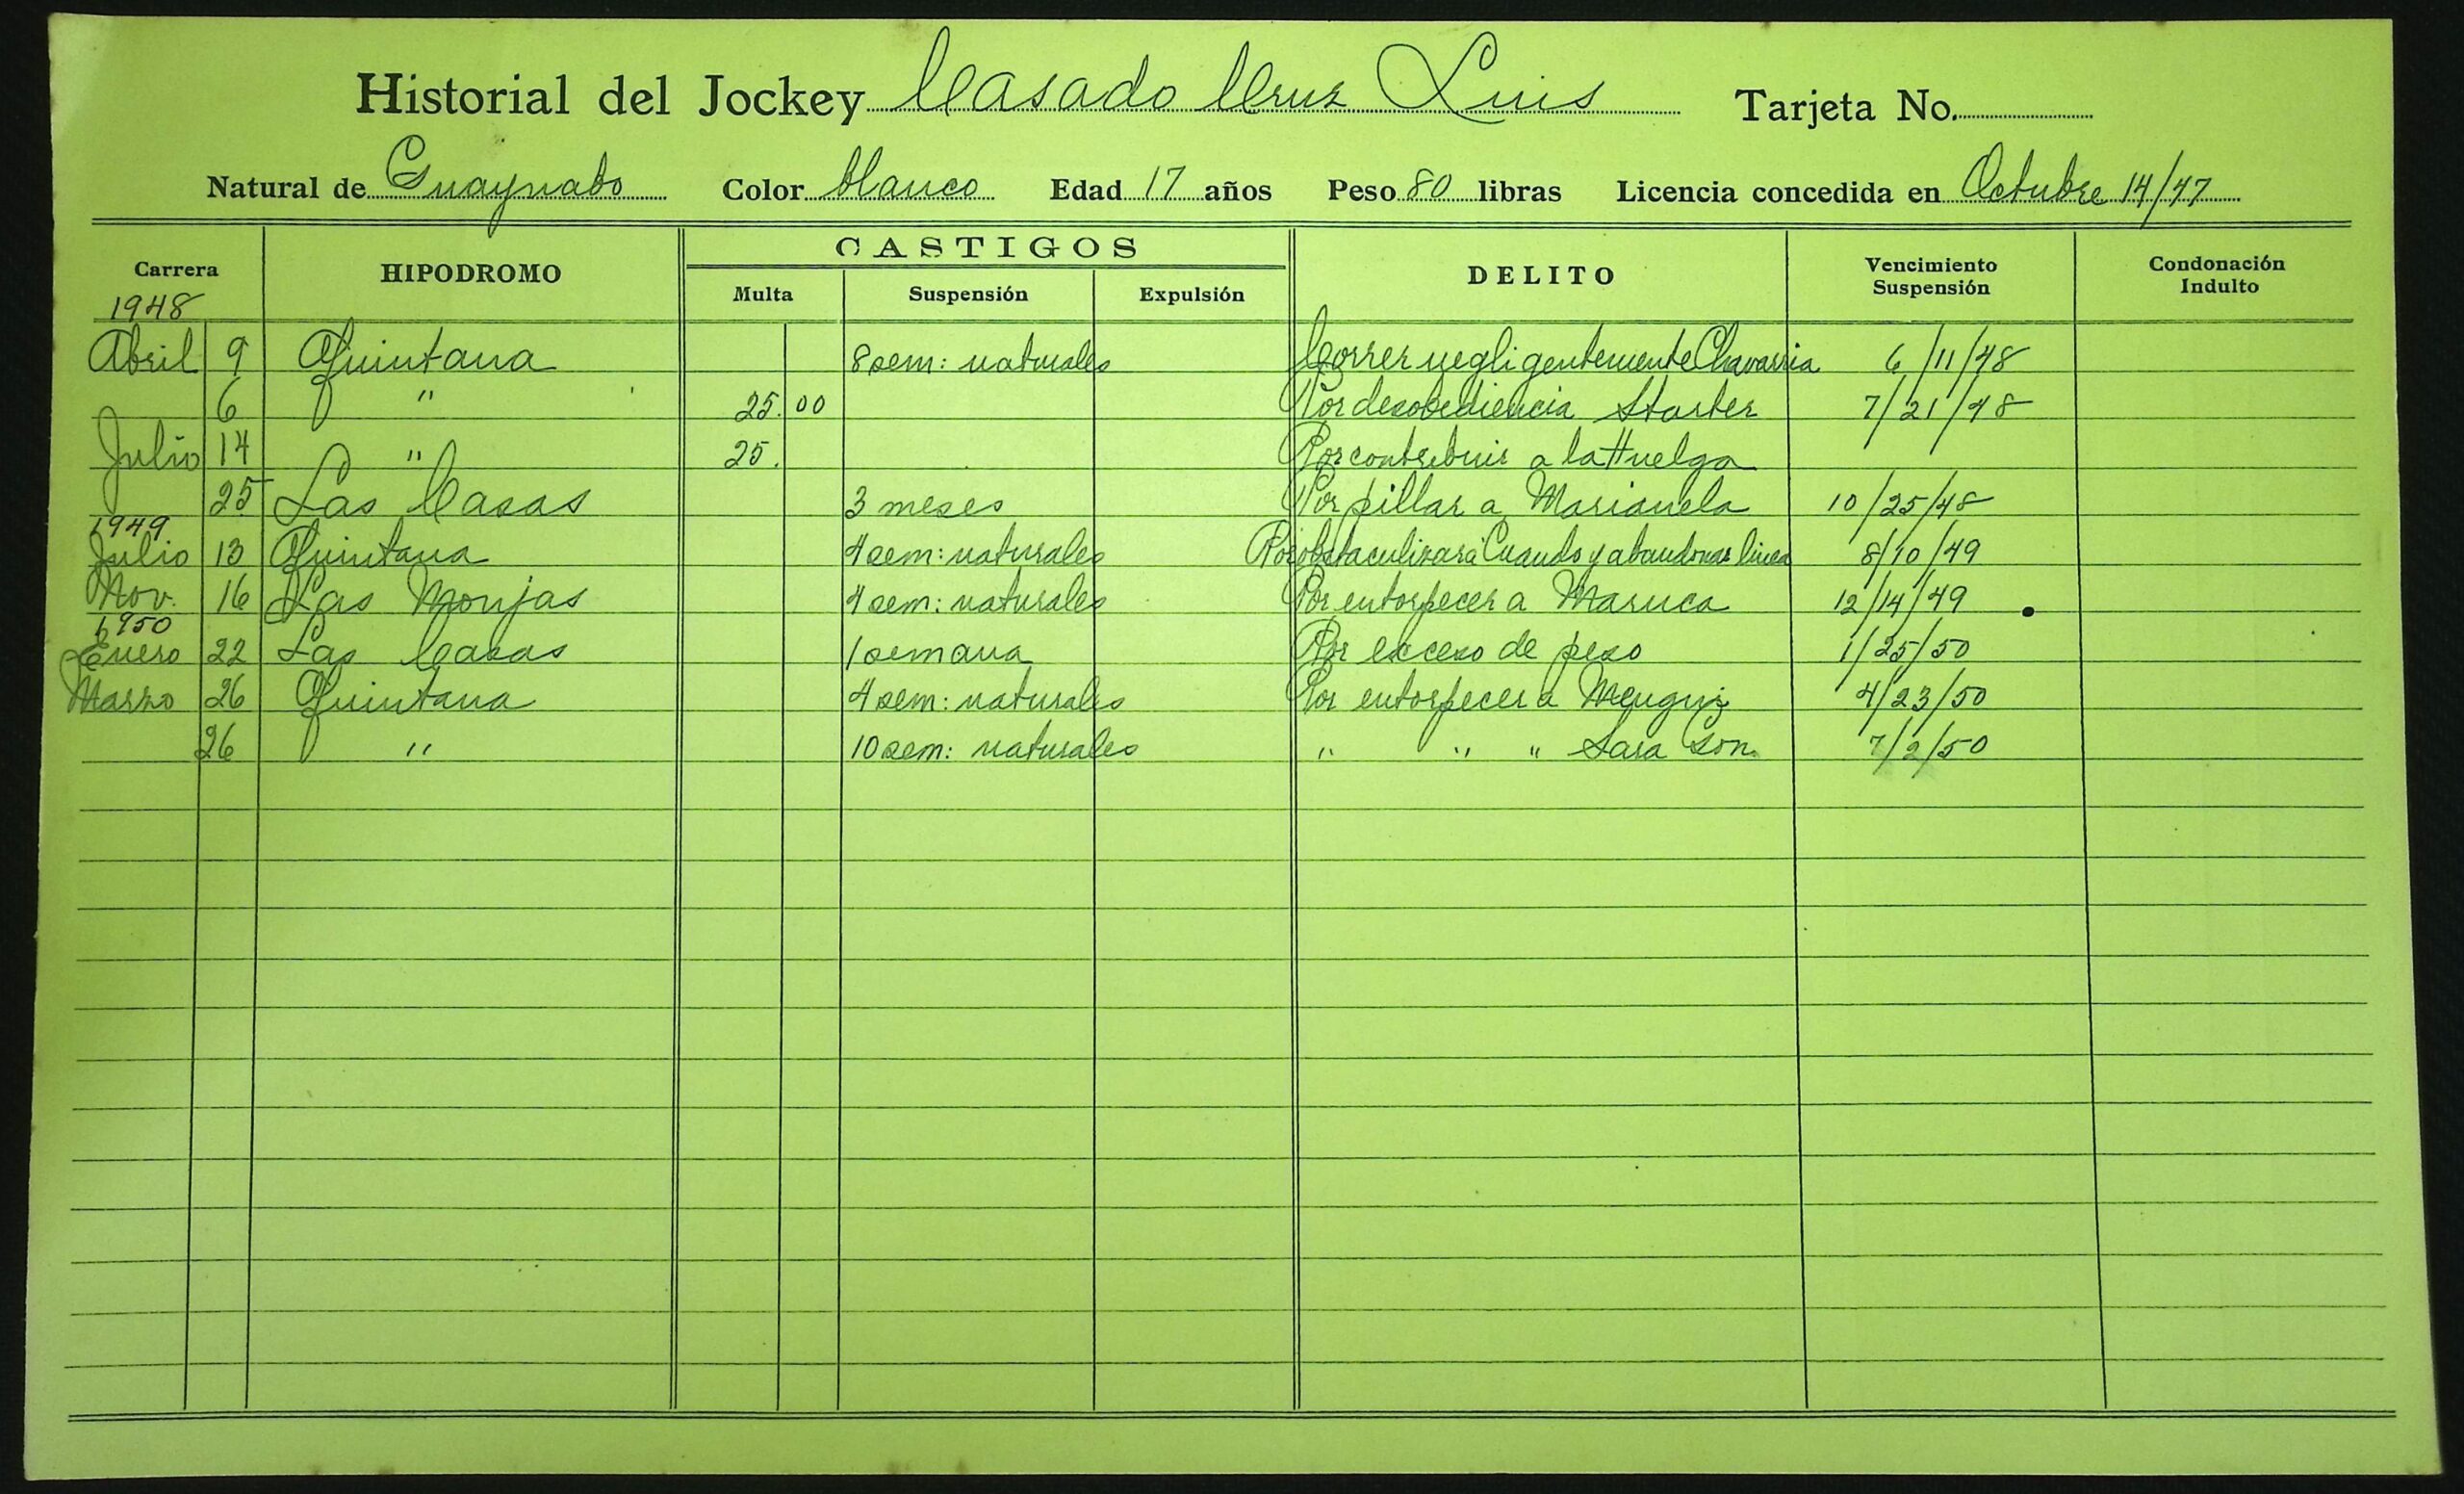 Historial del Jockey Casado Cruz Luis Tarjeta No.
Natural de Guaynabo Color blanco Edad 17 años Peso 80 libras Licencia concedida en Octubre 14/47
Carrera HIPODROMO CASTIGOS DELITO Vencimiento Suspensión Condonación Indulto
Multa Suspensión Expulsión
1948
Abril 9 Quintana 8 sem: naturales Correr negligentemente Chavarria 6/11/48
6 " 25.00 Por desobediencia Starter 7/21/48
Julio 14 " 25. Por contribuir a la Huelga
25 Las Casas 3 meses Por pillar a Marianela 10/25/48
1949
Julio 13 Quintana 4 sem: naturales Por obstaculizar a Cuando y abandonar linea 8/10/49
Nov. 16 Las Monjas 4 sem: naturales Por entorpecer a Maruca 12/14/49
1950
Enero 22 Las Casas 1 semana Por exceso de peso 1/25/50
Marzo 26 Quintana 4 sem: naturales Por entorpecer a 4/23/50
26 " 10 sem: naturales " " " Sara Son. 7/2/50